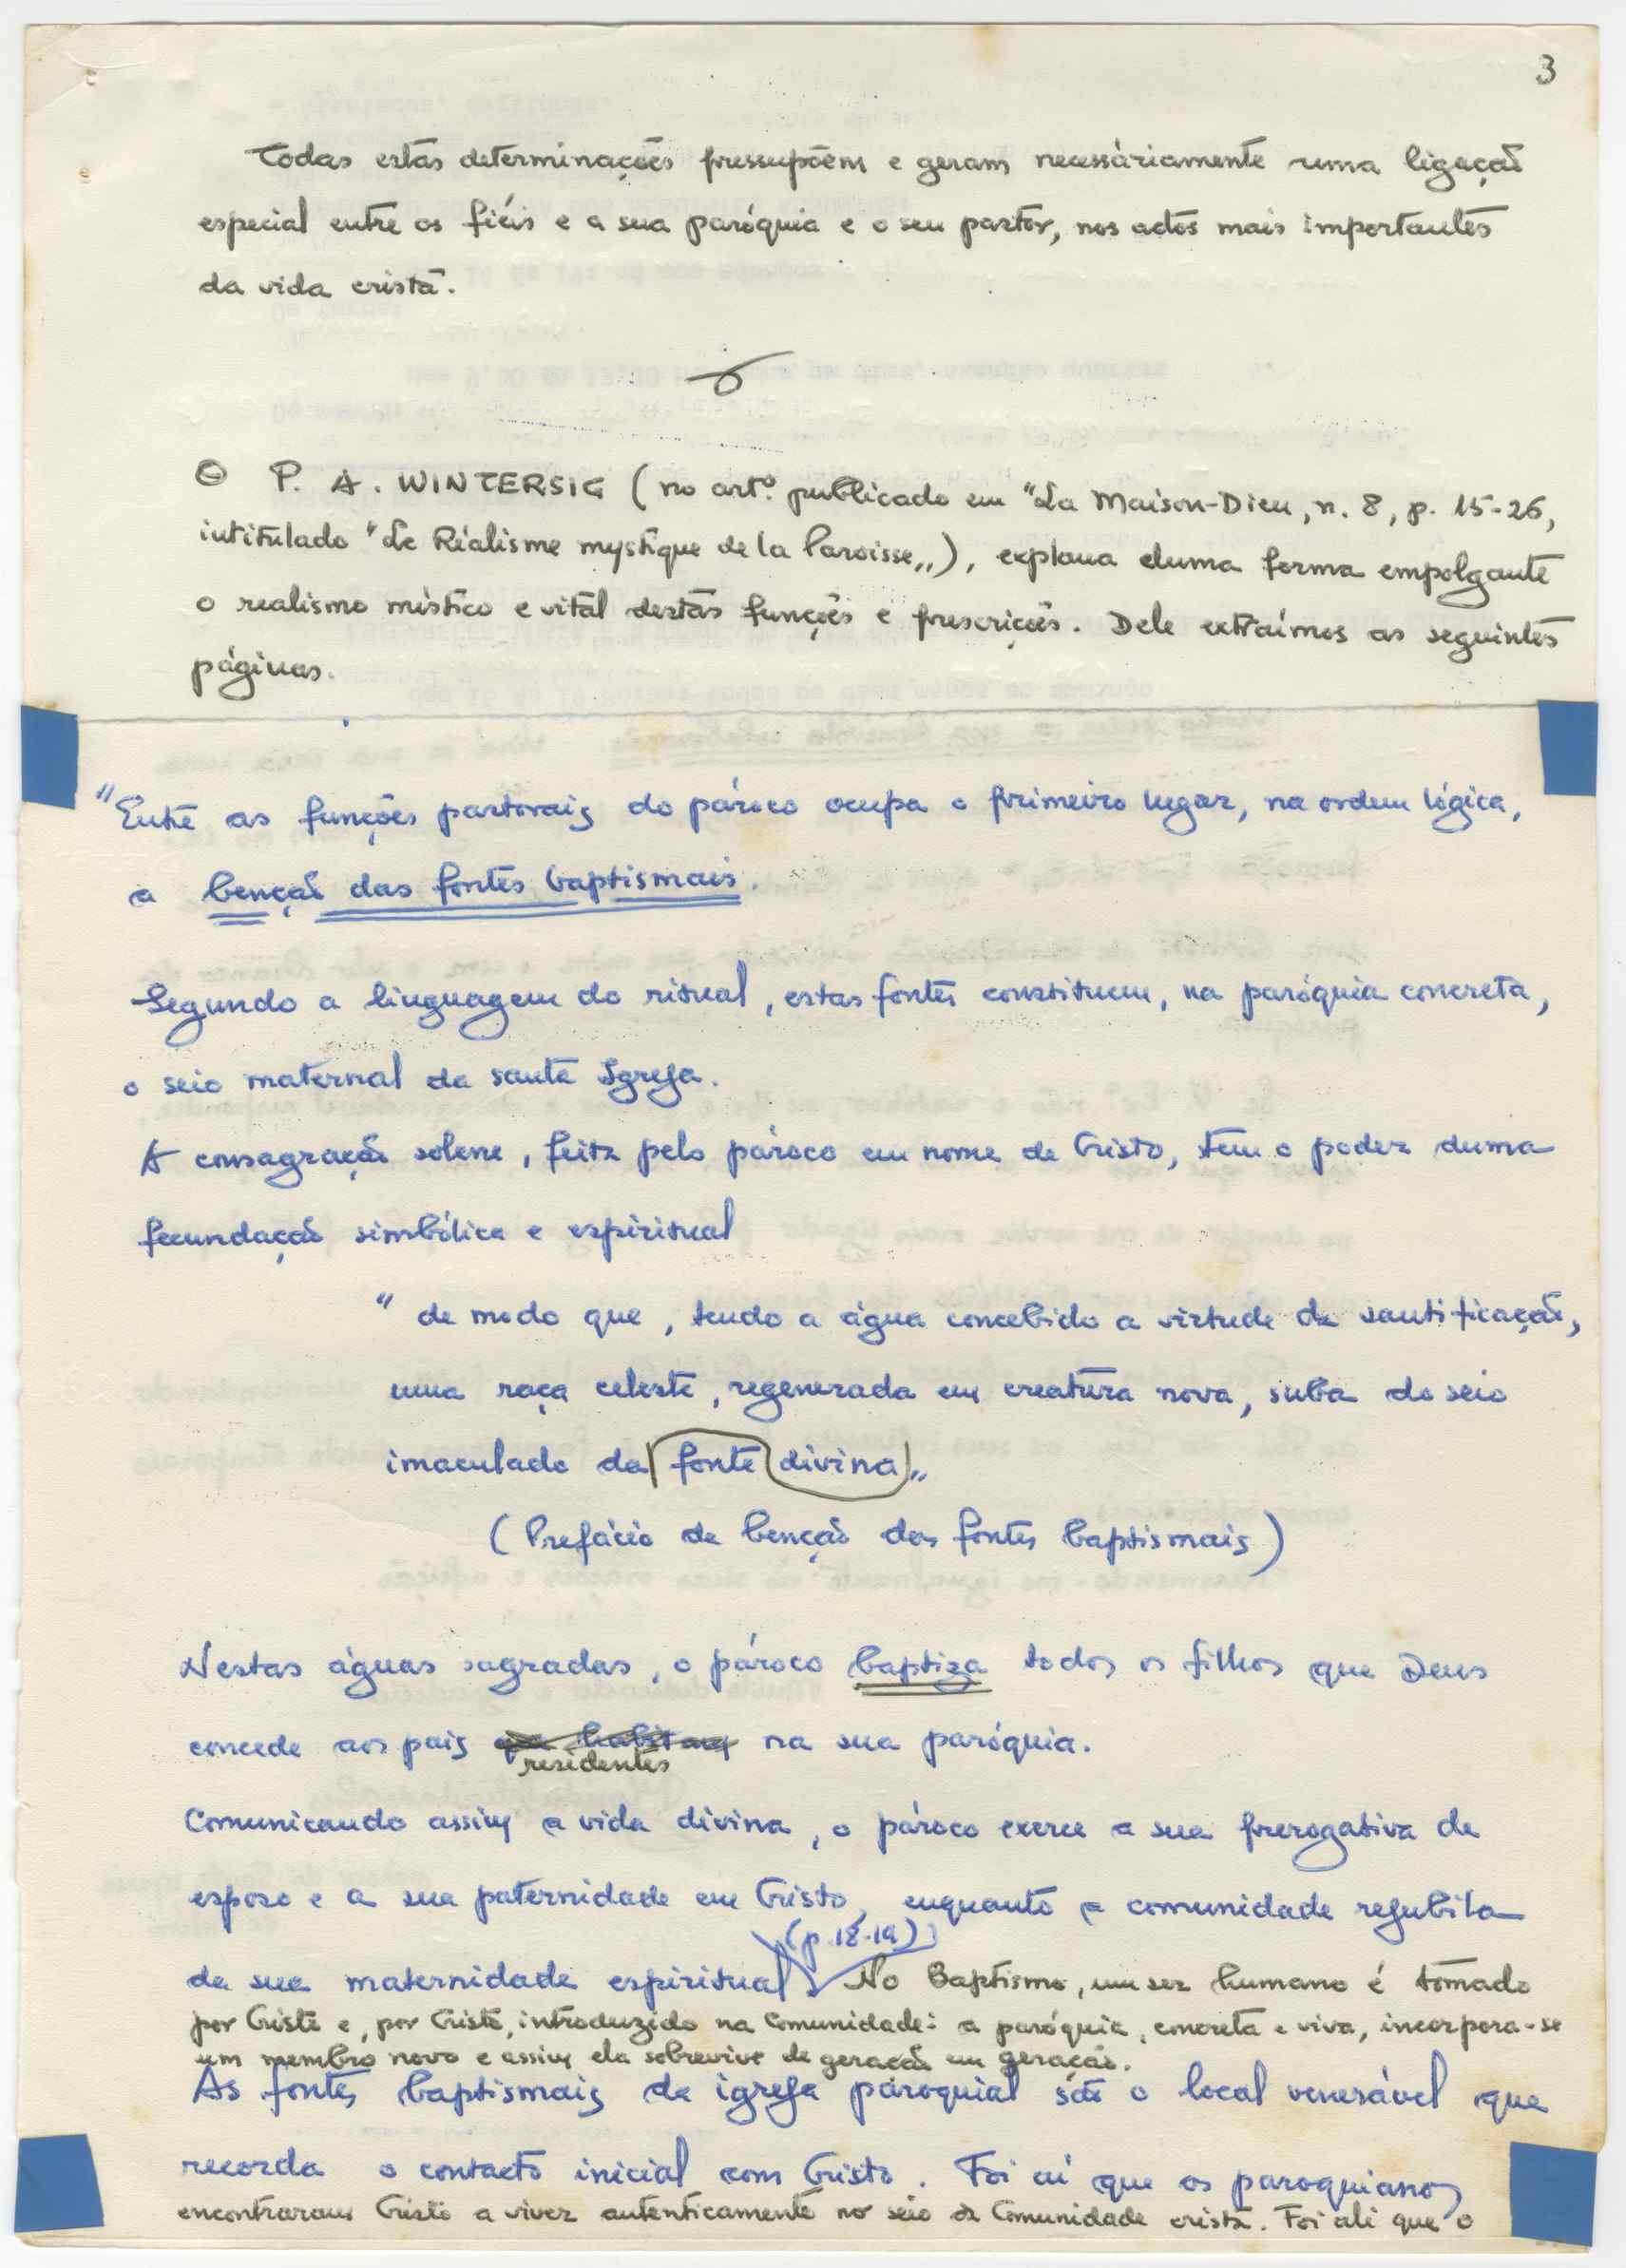 3
Todas estas determinações pressupõem e geram necessàriamente uma ligação
especial entre os fiéis e a sua paróquia e o seu pastor, nos actos mais importantes
da vida cristã.
O P. A. WINTERSIG (no artº publicado em "La Maison-Dieu, n. 8, p. 15-26,
intitulado "Le Réalisme mystique de la Paroisse„), explana duma forma empolgante
o realismo místico e vital destas funções e prescrições. Dele extraímos as seguintes
páginas.
"Entre as funções pastorais do pároco ocupa o primeiro lugar, na ordem lógica,
a benção das fontes baptismais.
Segundo a linguagem do ritual, estas fontes constituem, na paróquia concreta,
o seio maternal da santa Igreja.
A consagração solene, feita pelo pároco em nome de Cristo, tem o poder duma
fecundação simbólica e espiritual
"de modo que, tendo a água concebido a virtude da santificação,
uma raça celeste, regenerada em creatura nova, suba do seio
imaculado da fonte divina„
(Prefácio da benção das fontes baptismais)
Nestas águas sagradas, o pároco baptiza todos os filhos que Deus
concede aos pais que habitam na sua paróquia.
residentes
Comunicando assim a vida divina, o pároco exerce a sua prerogativa de
esposo e a sua paternidade em Cristo, enquanto a comunidade rejubila
(p. 18-19)
da sua maternidade espiritual. No Baptismo, um ser humano é tomado
por Cristo e, por Cristo, introduzido na Comunidade: a paróquia, concreta e viva, incorpora-se
um membro novo e assim ela sobrevive de geração em geração.
As fontes baptismais da igreja paroquial são o local venerável que
recorda o contacto inicial com Cristo. Foi aí que os paroquianos
encontraram Cristo a viver autenticamente no seio da Comunidade cristã. Foi ali que o